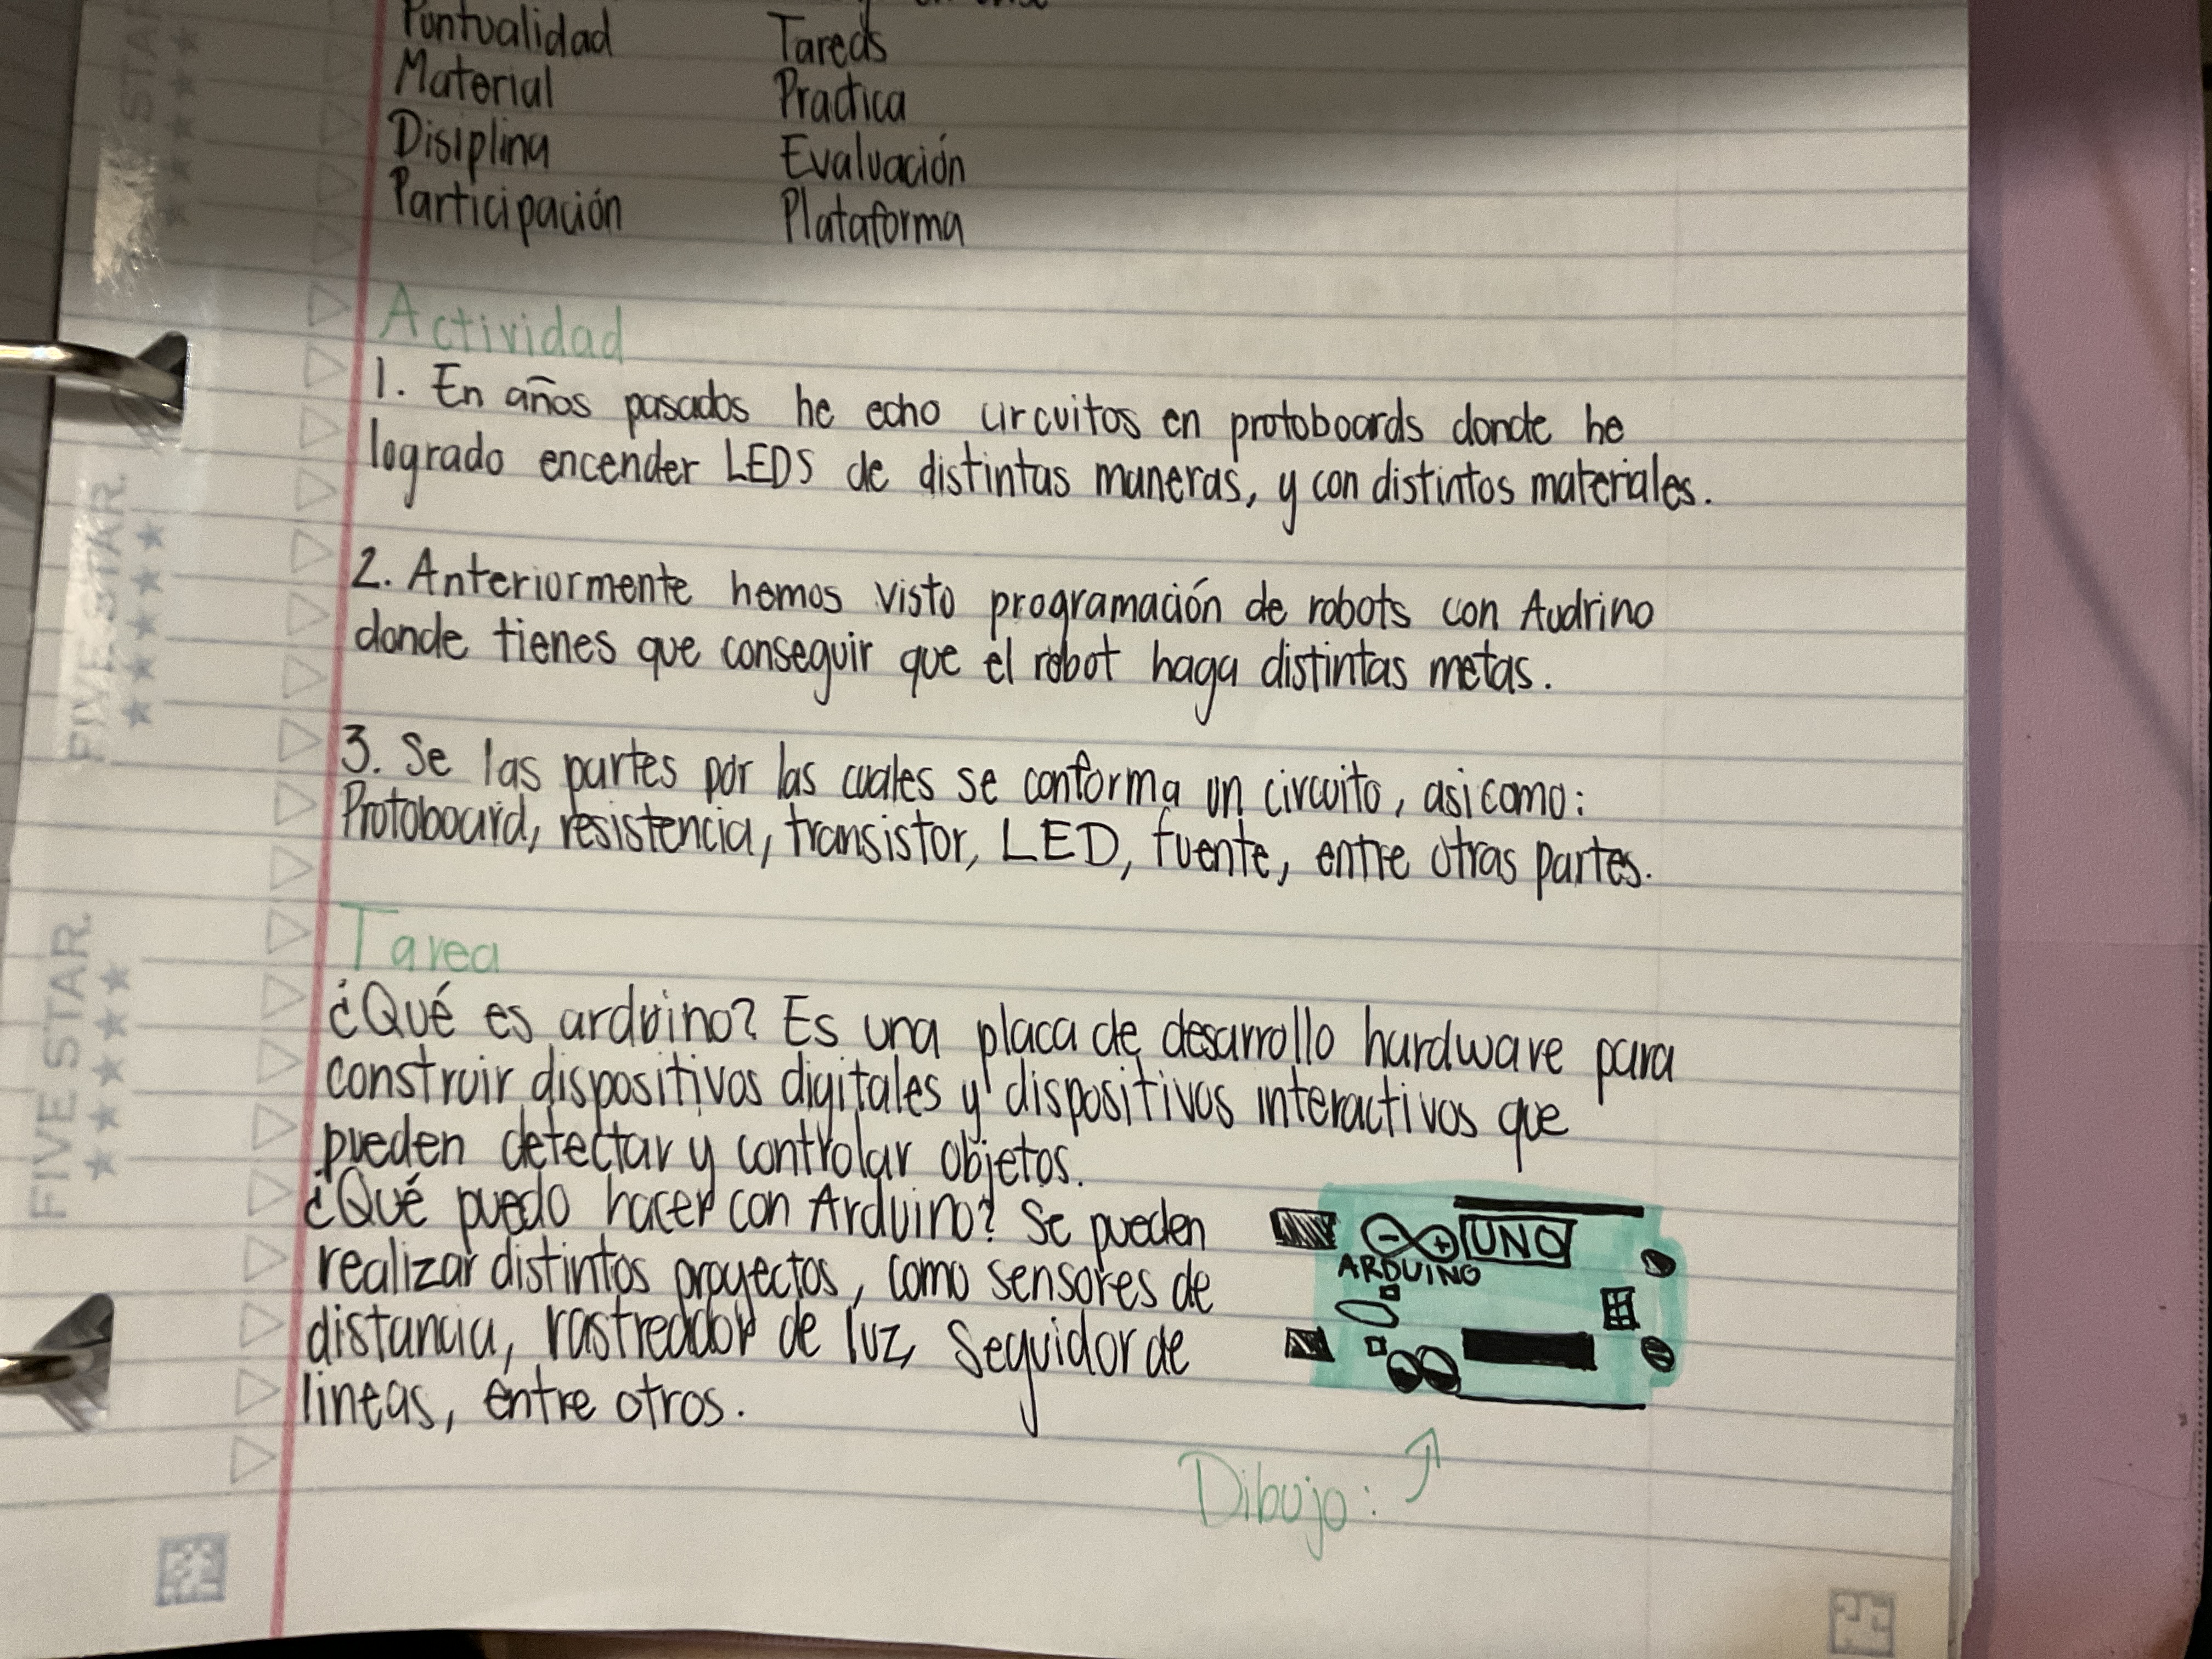 Puntualidad Tareas
Material Practica
Disiplina Evaluación
Participación Plataforma
Actividad
1. En años pasados he echo circuitos en protoboards donde he
logrado encender LEDS de distintas maneras, y con distintos materiales.
2. Anteriormente hemos visto programación de robots con Audrino
donde tienes que conseguir que el robot haga distintas metas.
3. Se las partes por las cuales se conforma un circuito, asi como:
Protoboard, resistencia, transistor, LED, fuente, entre otras partes.
Tarea
¿Qué es arduino? Es una placa de desarrollo hardware para
construir dispositivos digitales y dispositivos interactivos que
pueden detectar y controlar objetos.
¿Qué puedo hacer con Arduino? Se pueden
realizar distintos proyectos, como sensores de
distancia, rastreador de luz, seguidor de
lineas, entre otros.
UNO
ARDUINO
Dibujo:
FIVE STAR
FIVE STAR
FIVE STAR